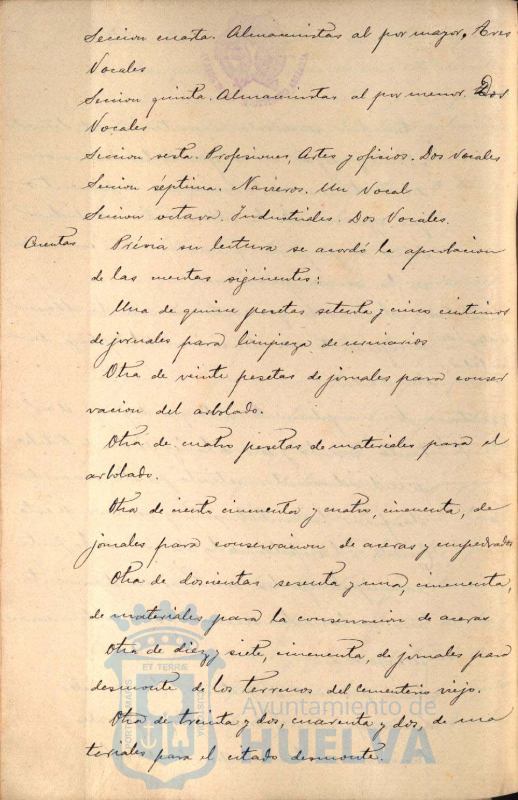 Seccion cuarta. Almacenistas al por mayor, Tres
Vocales
Seccion quinta. Almacenistas al por menor. Dos
Vocales
Seccion sexta. Profesiones, Artes y oficios. Dos Vocales
Seccion séptima. Navieros. Un Vocal
Seccion octava. Industriales. Dos Vocales.
Cuentas
Prévia su lectura se acordó la aprobacion
de las cuentas siguientes:
Una de quince pesetas setenta y cinco centimos
de jornales para limpieza de urinarios
Otra de veinte pesetas de jornales para conser
vacion del arbolado.
Otra de cuatro pesetas de materiales para el
arbolado.
Otra de ciento cincuenta y cuatro, cincuenta, de
jornales para conservacion de aceras y empedrados
Otra de doscientas sesenta y una, cincuenta,
de materiales para la conservacion de aceras
Otra de diez y siete, cincuenta, de jornales para
desmonte de los terrenos del cementerio viejo.
Otra de treinta y dos, cuarenta y dos, de ma
teriales para el citado desmonte.
ET TERRÆ
Ayuntamiento de
HUELVA